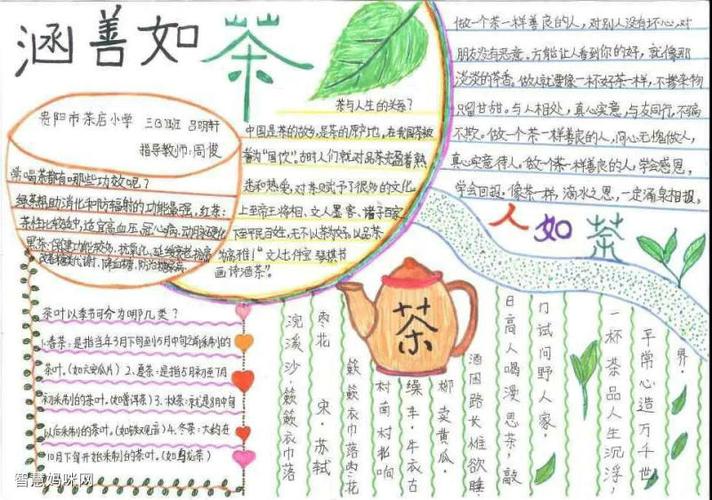 涵善如茶
贵阳市茶店小学 三(3)班 吕明轩
指导教师:周俊
常喝茶都有哪些功效呢?
绿茶帮助消化和防辐射的功能最强,红茶:
茶性比较适中,适宜高血压,冠心病,动脉硬化
茶与人生的关系?
中国是茶的故乡,是茶的原产地,在我国茶被
誉为“国饮”,古时人们就对品茶充盈着熟
悉和热爱,对茶赋予了很多的文化
上至帝王将相、文人墨客、诸子百家
下至平民百姓,无不以茶为好,以品茶
为高雅!“文人七件宝 琴棋书
画诗酒茶”。
做一个茶一样善良的人,对别人没有坏心,对
朋友没有恶意。方能让人看到你的好,就像那
淡淡的茶香。做人就要像一杯好茶一样,不掺杂物
只留甘甜。与人相处,真心实意,与友同行,不骗
不欺。做一个茶一样善良的人,问心无愧做人,
真心实意待人。做一个茶一样善良的人,学会感恩,
学会回报。像茶一样,滴水之恩,一定涌泉相报。
人如茶
茶
茶叶以季节可分为哪几类?
1、春茶:是指当年3月下旬到5月中旬之前采制的
茶叶。(如六安瓜片)2、夏茶:是指5月初至7月
初采制的茶叶。(如普洱茶)3、秋茶:就是8月中旬
以后采制的茶叶。(如铁观音)4、冬茶:大约在
10月下旬开始采制的茶叶。(如乌龙茶)
浣溪沙·簌簌衣巾落
枣花 宋·苏轼
簌簌衣巾落枣花
村南村北响
缲车,牛衣古
柳卖黄瓜。
酒困路长惟欲睡
日高人渴漫思茶,敲
门试问野人家。
一杯茶品人生沉浮,
平常心造万千世
界
智慧妈咪网